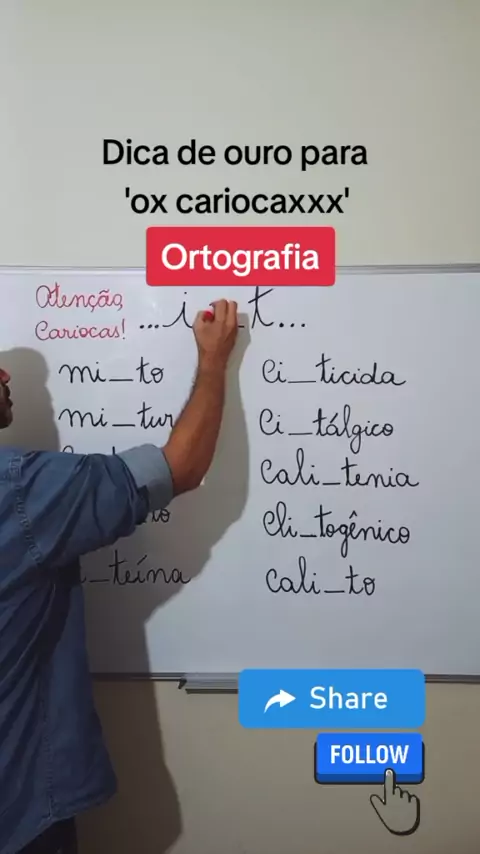 Dica de ouro para
'ox cariocaxxx'
Ortografia
Atenção,
Cariocas!
...i_t...
mi_to
mi_tur
_teína
Ci_ticida
Ci_tálgico
Cali_tenia
Cli_togênico
Cali_to
Share
FOLLOW